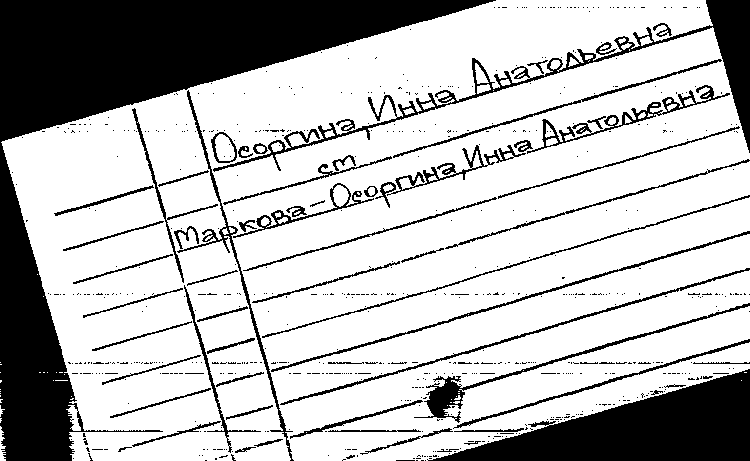 Осоргина, Инна Анатольевна
см
Маркова-Осоргина, Инна Анатольевна